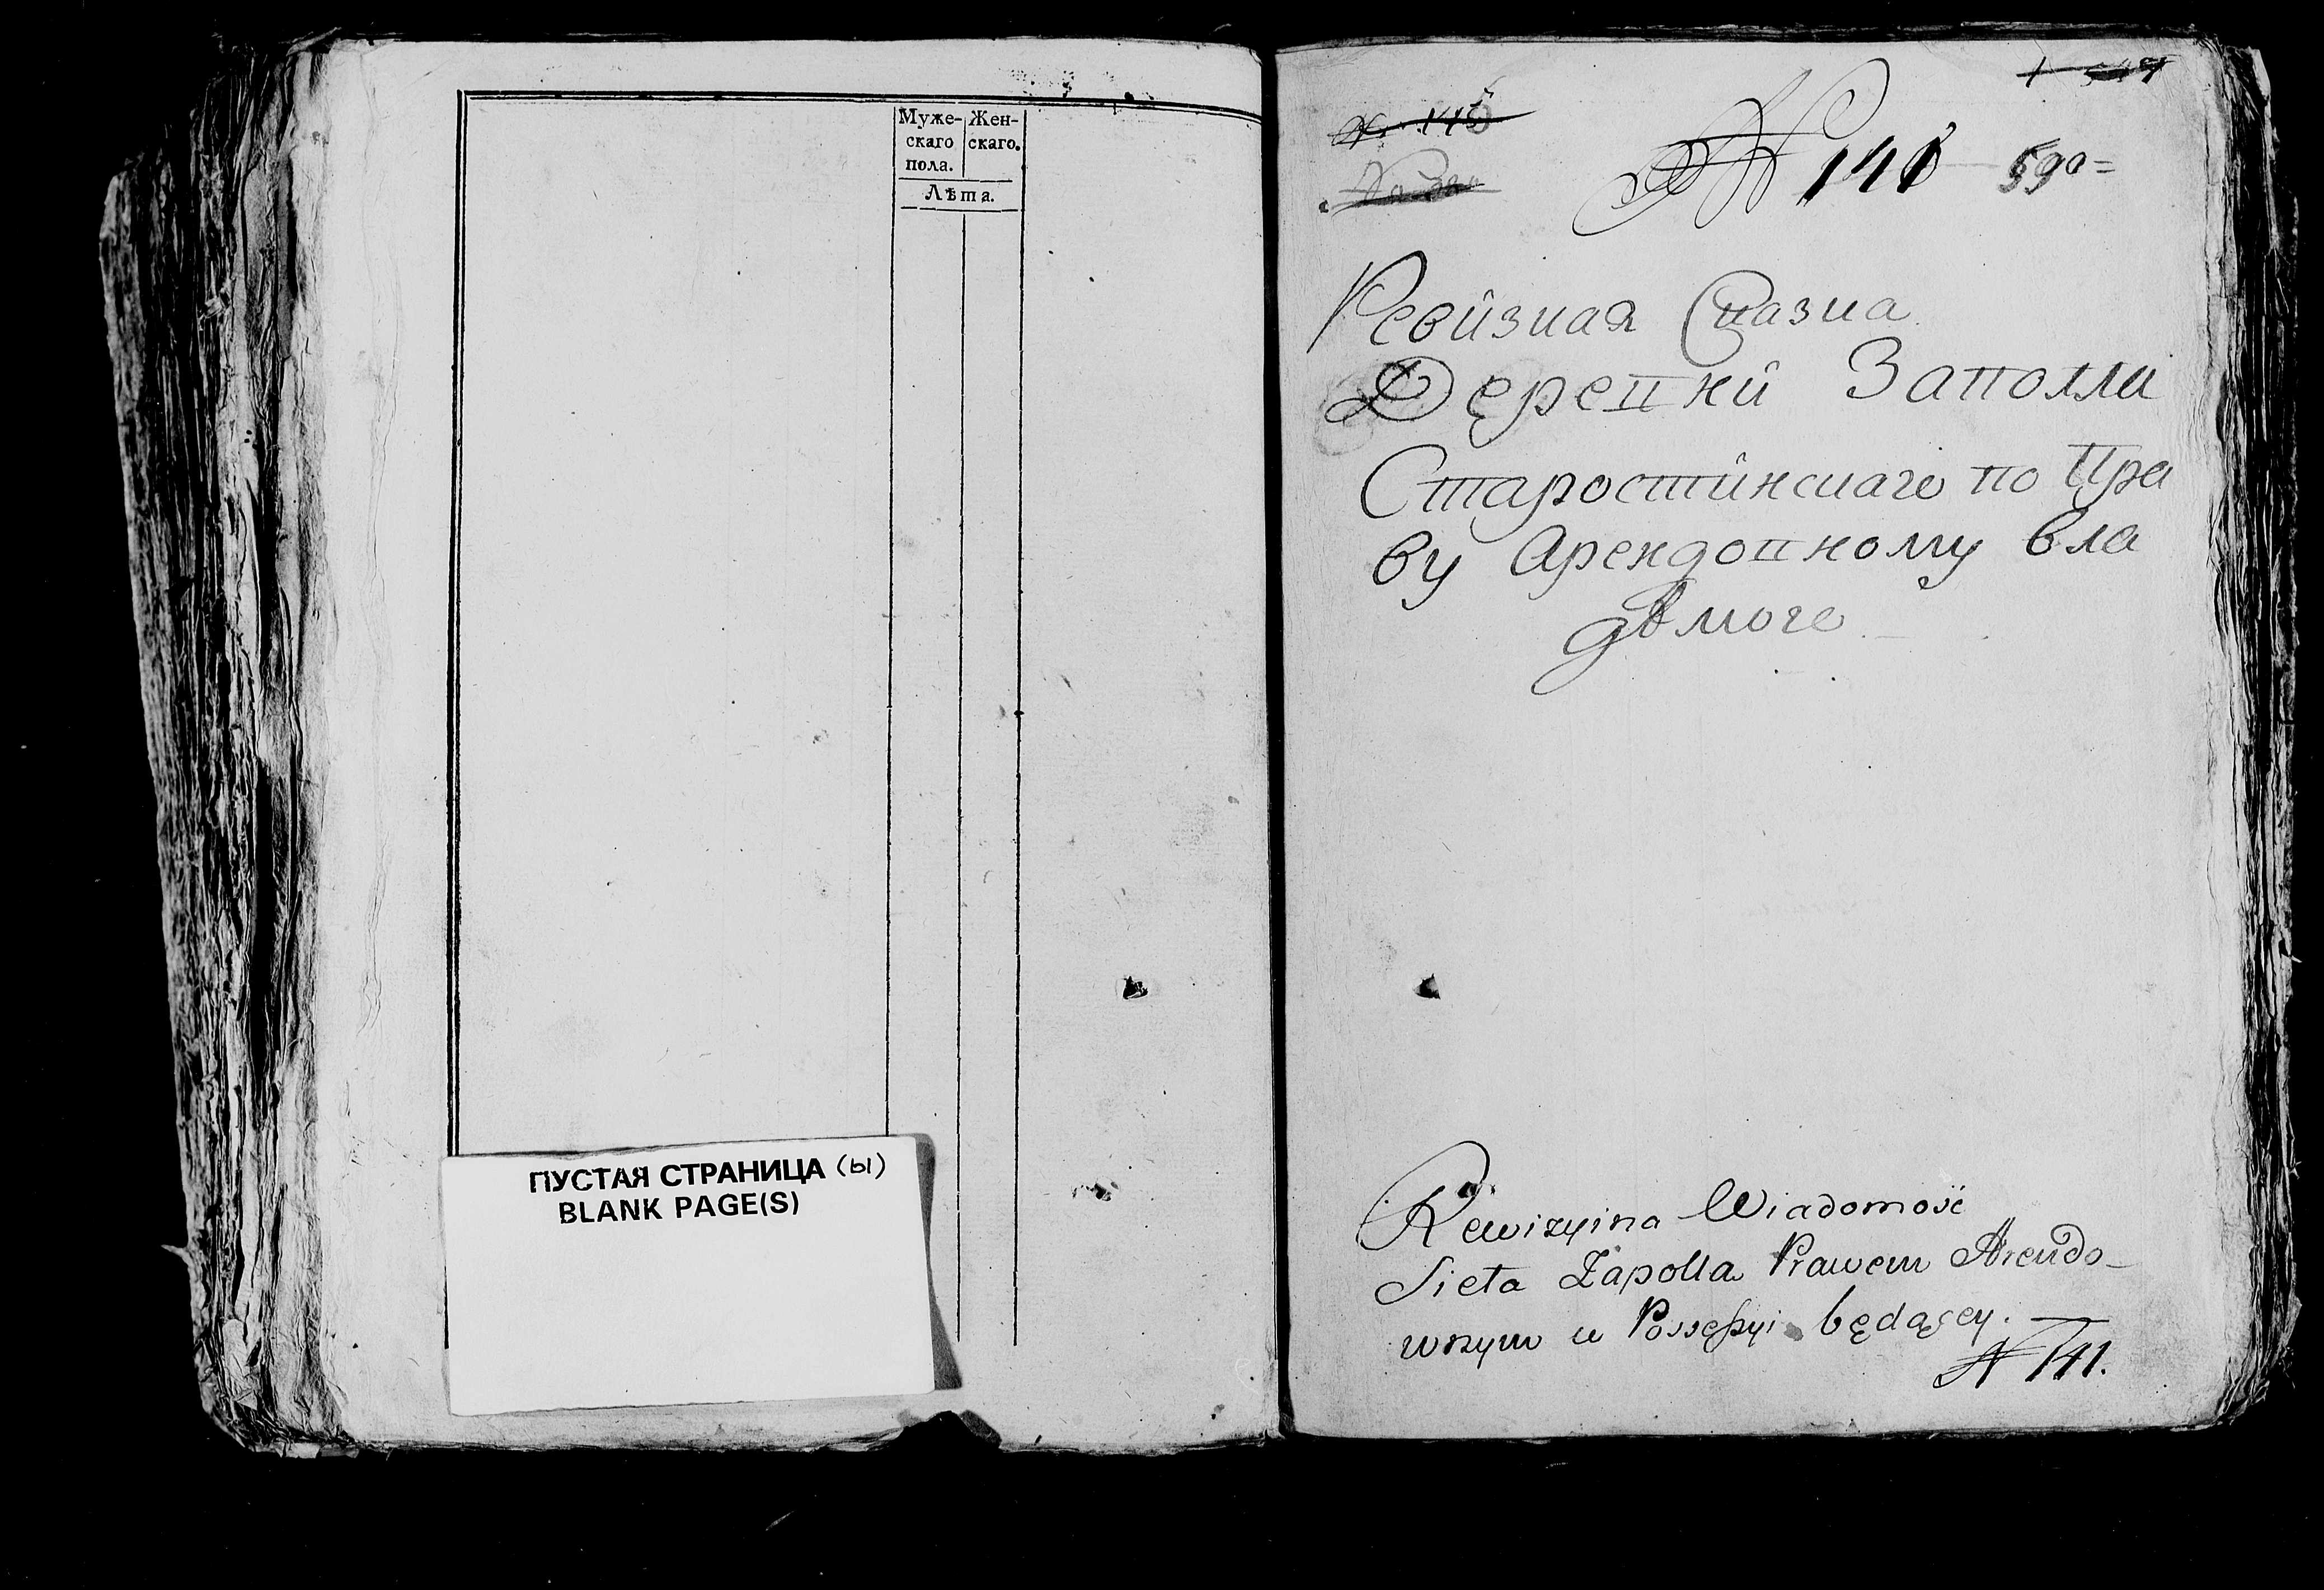 Муже- Жен-
скаго скаго.
пола.
Лѣта.
ПУСТАЯ СТРАНИЦА (ы)
BLANK PAGE(S)
№ 141 590=
Ревизная Сказка
Деревни Заполли
Старостинскаго по Пра
ву Арендовному вла
дѣмоге
Rewizyina Wiadomość
Sieła Zapolla Prawem Arendo-
wnym w Possessyi będącey.
N 141.